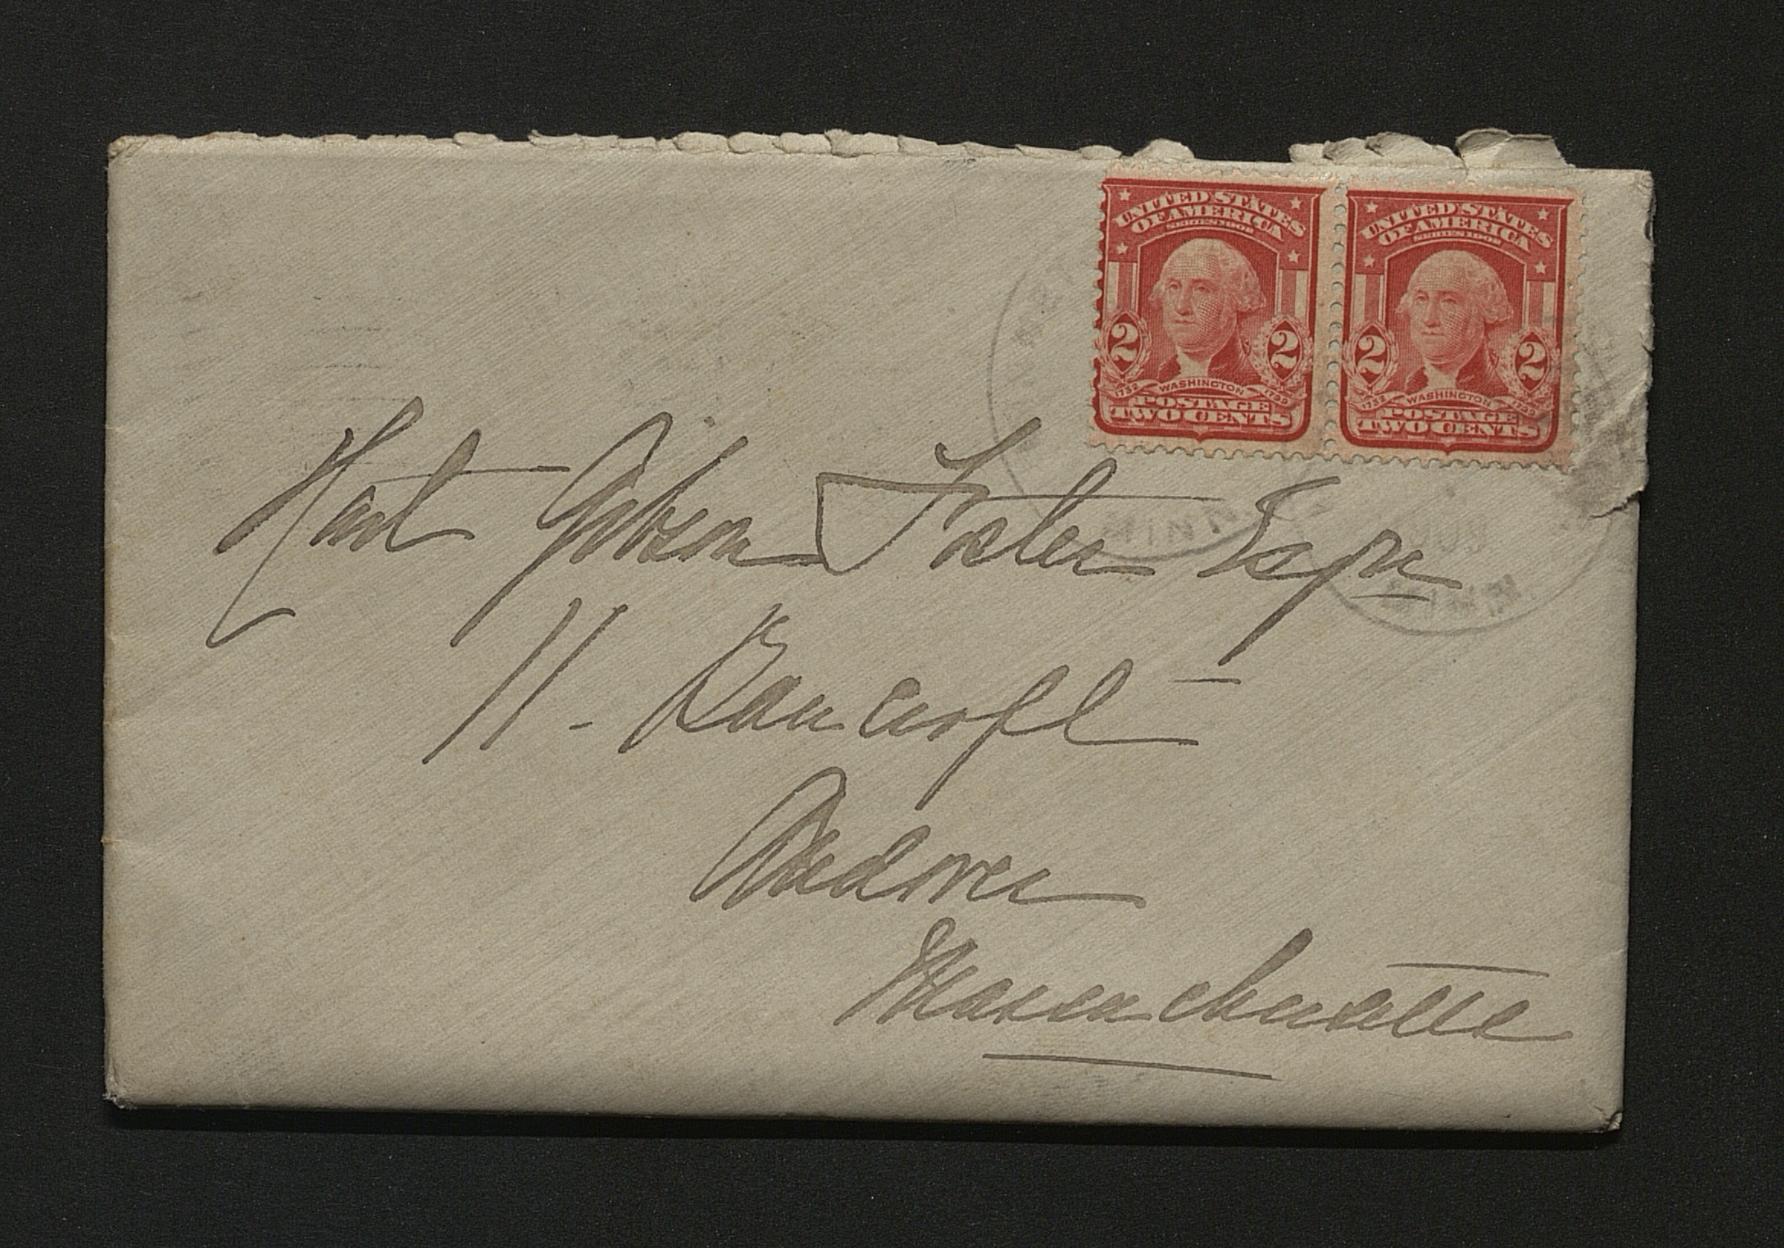 UNITED STATES
OF AMERICA
SERIES 1902
2 2
1732 WASHINGTON 1799
POSTAGE
TWO CENTS
UNITED STATES
OF AMERICA
SERIES 1902
2 2
1732 WASHINGTON 1799
POSTAGE
TWO CENTS
Hart Gibson Foster Esqr
11 - Bancroft -
Andover
Massachusetts